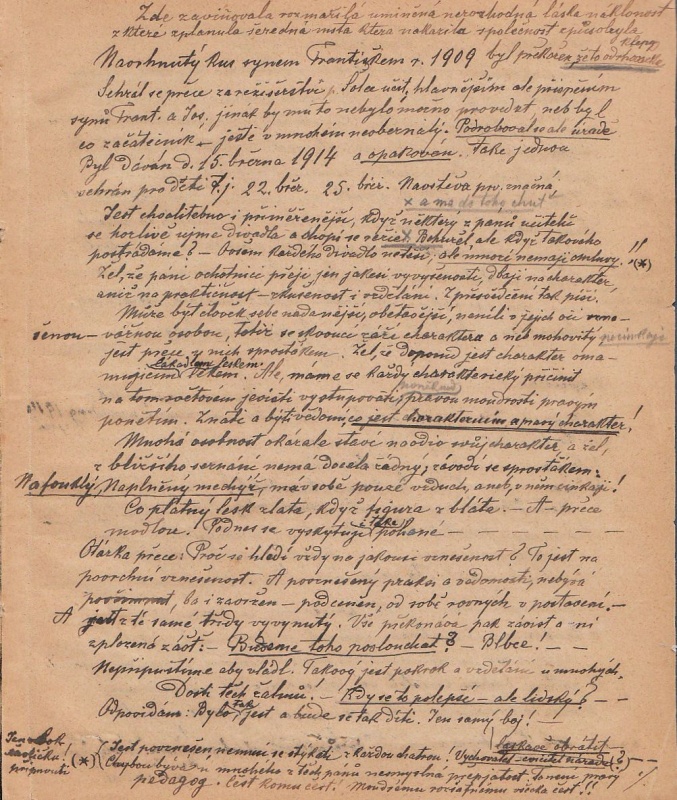 Zde zaviňovala rozmařilá umíněná nerozhodná láska náklonost
z které vzplanula šeredná msta která nakazila společnost způsobyla klepy
Navrhnutý kus synem Františkem r. 1909 byl překažen že to odchazelo
Sehrál se přece za režisérství p. Solce učit, hlavnějším ale přispěním
synů Frant. a Jos. jinak by mu to nebylo možno provedst, neb byl
co začátečník - ještě v mnohém neobernělý. Podroboval se ale úřadě
Byl dáván d. 15. března 1914 a opakován. Také jednou
sehrán pro děti t.j. 22. břez. 25. břez. Navštěva prv. značná
× a má do toho chuť
Jest chvalitebno i přiměřenější, když některý z pánů učitelů
se horlivě ujme divadla a chopí se věci × Bohužel, ale když takového
postrádáme? - Ovšem každého divadlo netěší, ale mnozí nemají omluvy! (*)
Žel, že páni ochotníci přejí jen jakési vyvýšenosti, dbají na charakter
aniž na praktičnost - zkušenost i vzdělání. Z přesvědčení tak píši.
Může být člověk sebe nadanější, obětavější, není-li v jejich očí vzne-
šenou - vážnou osobou, totiž se skvoucí září charakteru a neb mohovitý
jest přece u nich sprostákem. Žel, že doposud jest charakter oma-
mujícím lákadlem leskem věkem. Ale, máme se každý charakterický přičinit
na tom světovém jevišti vystupovati, pravou moudrostí pravým
ponětím. Znáti a býti vědomi, co jest charakterním a pravý charakter!
Mnohá osobnost okázale staví na odiv svůj charakter, a žel,
z bližšího seznání nemá docela žádný; závodí se sprostákem:
Nafouklý, Naplněný měchýř, má v sobě pouze vzduch, aneb, v něm cinkají!
Co platný lesk zlata, když figura z bláta. - A - přece
modlou! Podnes se vyskytují i také pohané - - - -
Otázka přece: Proč se hledí vždy na jakousi vznešenost? To jest na
povrchní vznešenost. A povznešený praksí a vědomostí, nebývá
, ba i zavržen - podceněn, od sobě rovných v postavení. -
A z té samé třídy vyvynutý. Vše překonává pak závist a - ní
zplozená zášť: - Budeme toho poslouchat? - Blbce! -
Nepřipustíme aby vládl. Takový jest pokrok a vzdělání u mnohých.
Dosti těch žalmů! - Kdy se to polepší - ale lidský? - -
Odpovídám: Bylo tak, jest a bude se tak díti. Jen samý boj! -
laskavě obrátit
(*) Jest povznešen nemusí se stýkati z každou chatrou! Vychovatel - učitel národa (?)
Chybou bývá u mnohého z těch pánů neomylná prepjatost, tonem pravý
pedagog. Čest komu čest!